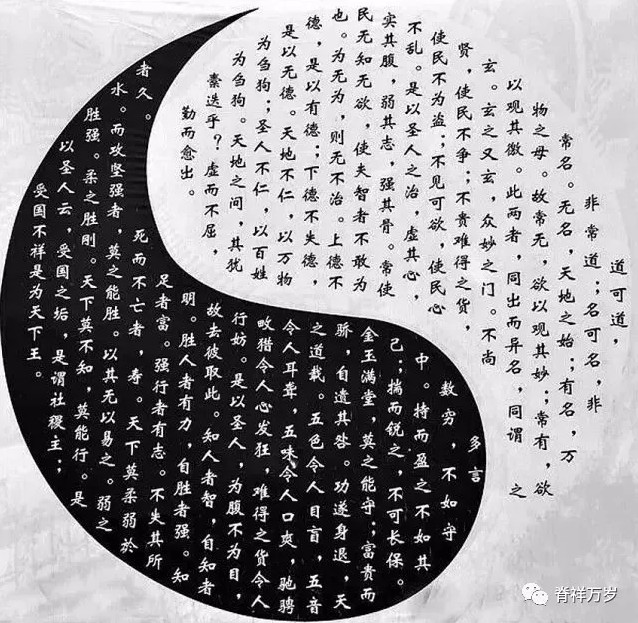 道可道,
非常道;名可名,非
常名。无名,天地之始;有名,万
物之母。故常无,欲以观其妙;常有,欲
以观其徼。此两者,同出而异名,同谓 之
玄。玄之又玄,众妙之门。不尚
贤,使民不争;不贵难得之货,
使民不为盗;不见可欲,使民心
不乱。是以圣人之治,虚其心,
实其腹,弱其志,强其骨。常使
民无知无欲,使夫智者不敢为
也。为无为,则无不治。上德不
德,是以有德;下德不失德,
是以无德。天地不仁,以万物
为刍狗;圣人不仁,以百姓
为刍狗。天地之间,其犹
橐迭乎?虚而不屈,
勤而愈出。
多言
数穷,不如守
中。持而盈之不如其
己;揣而锐之,不可长保。
金玉满堂,莫之能守;富贵而
骄,自遗其咎。功遂身退,天
之道载。五色令人目盲,五音
令人耳聋,五味令人口爽,驰骋
畋猎令人心发狂,难得之货令人
行妨。是以圣人,为腹不为目,
故去彼取此。知人者智,自知者
明。胜人者有力,自胜者强。知
足者富。强行者有志。不失其所
者久。 死而不亡者,寿。天下莫柔弱於
水。而攻坚强者,莫之能胜。以其无以易之。弱之
胜强。柔之胜刚。天下莫不知,莫能行。是
以圣人云,受国之垢,是谓社稷主;
受国不祥是为天下王。
脊祥万岁